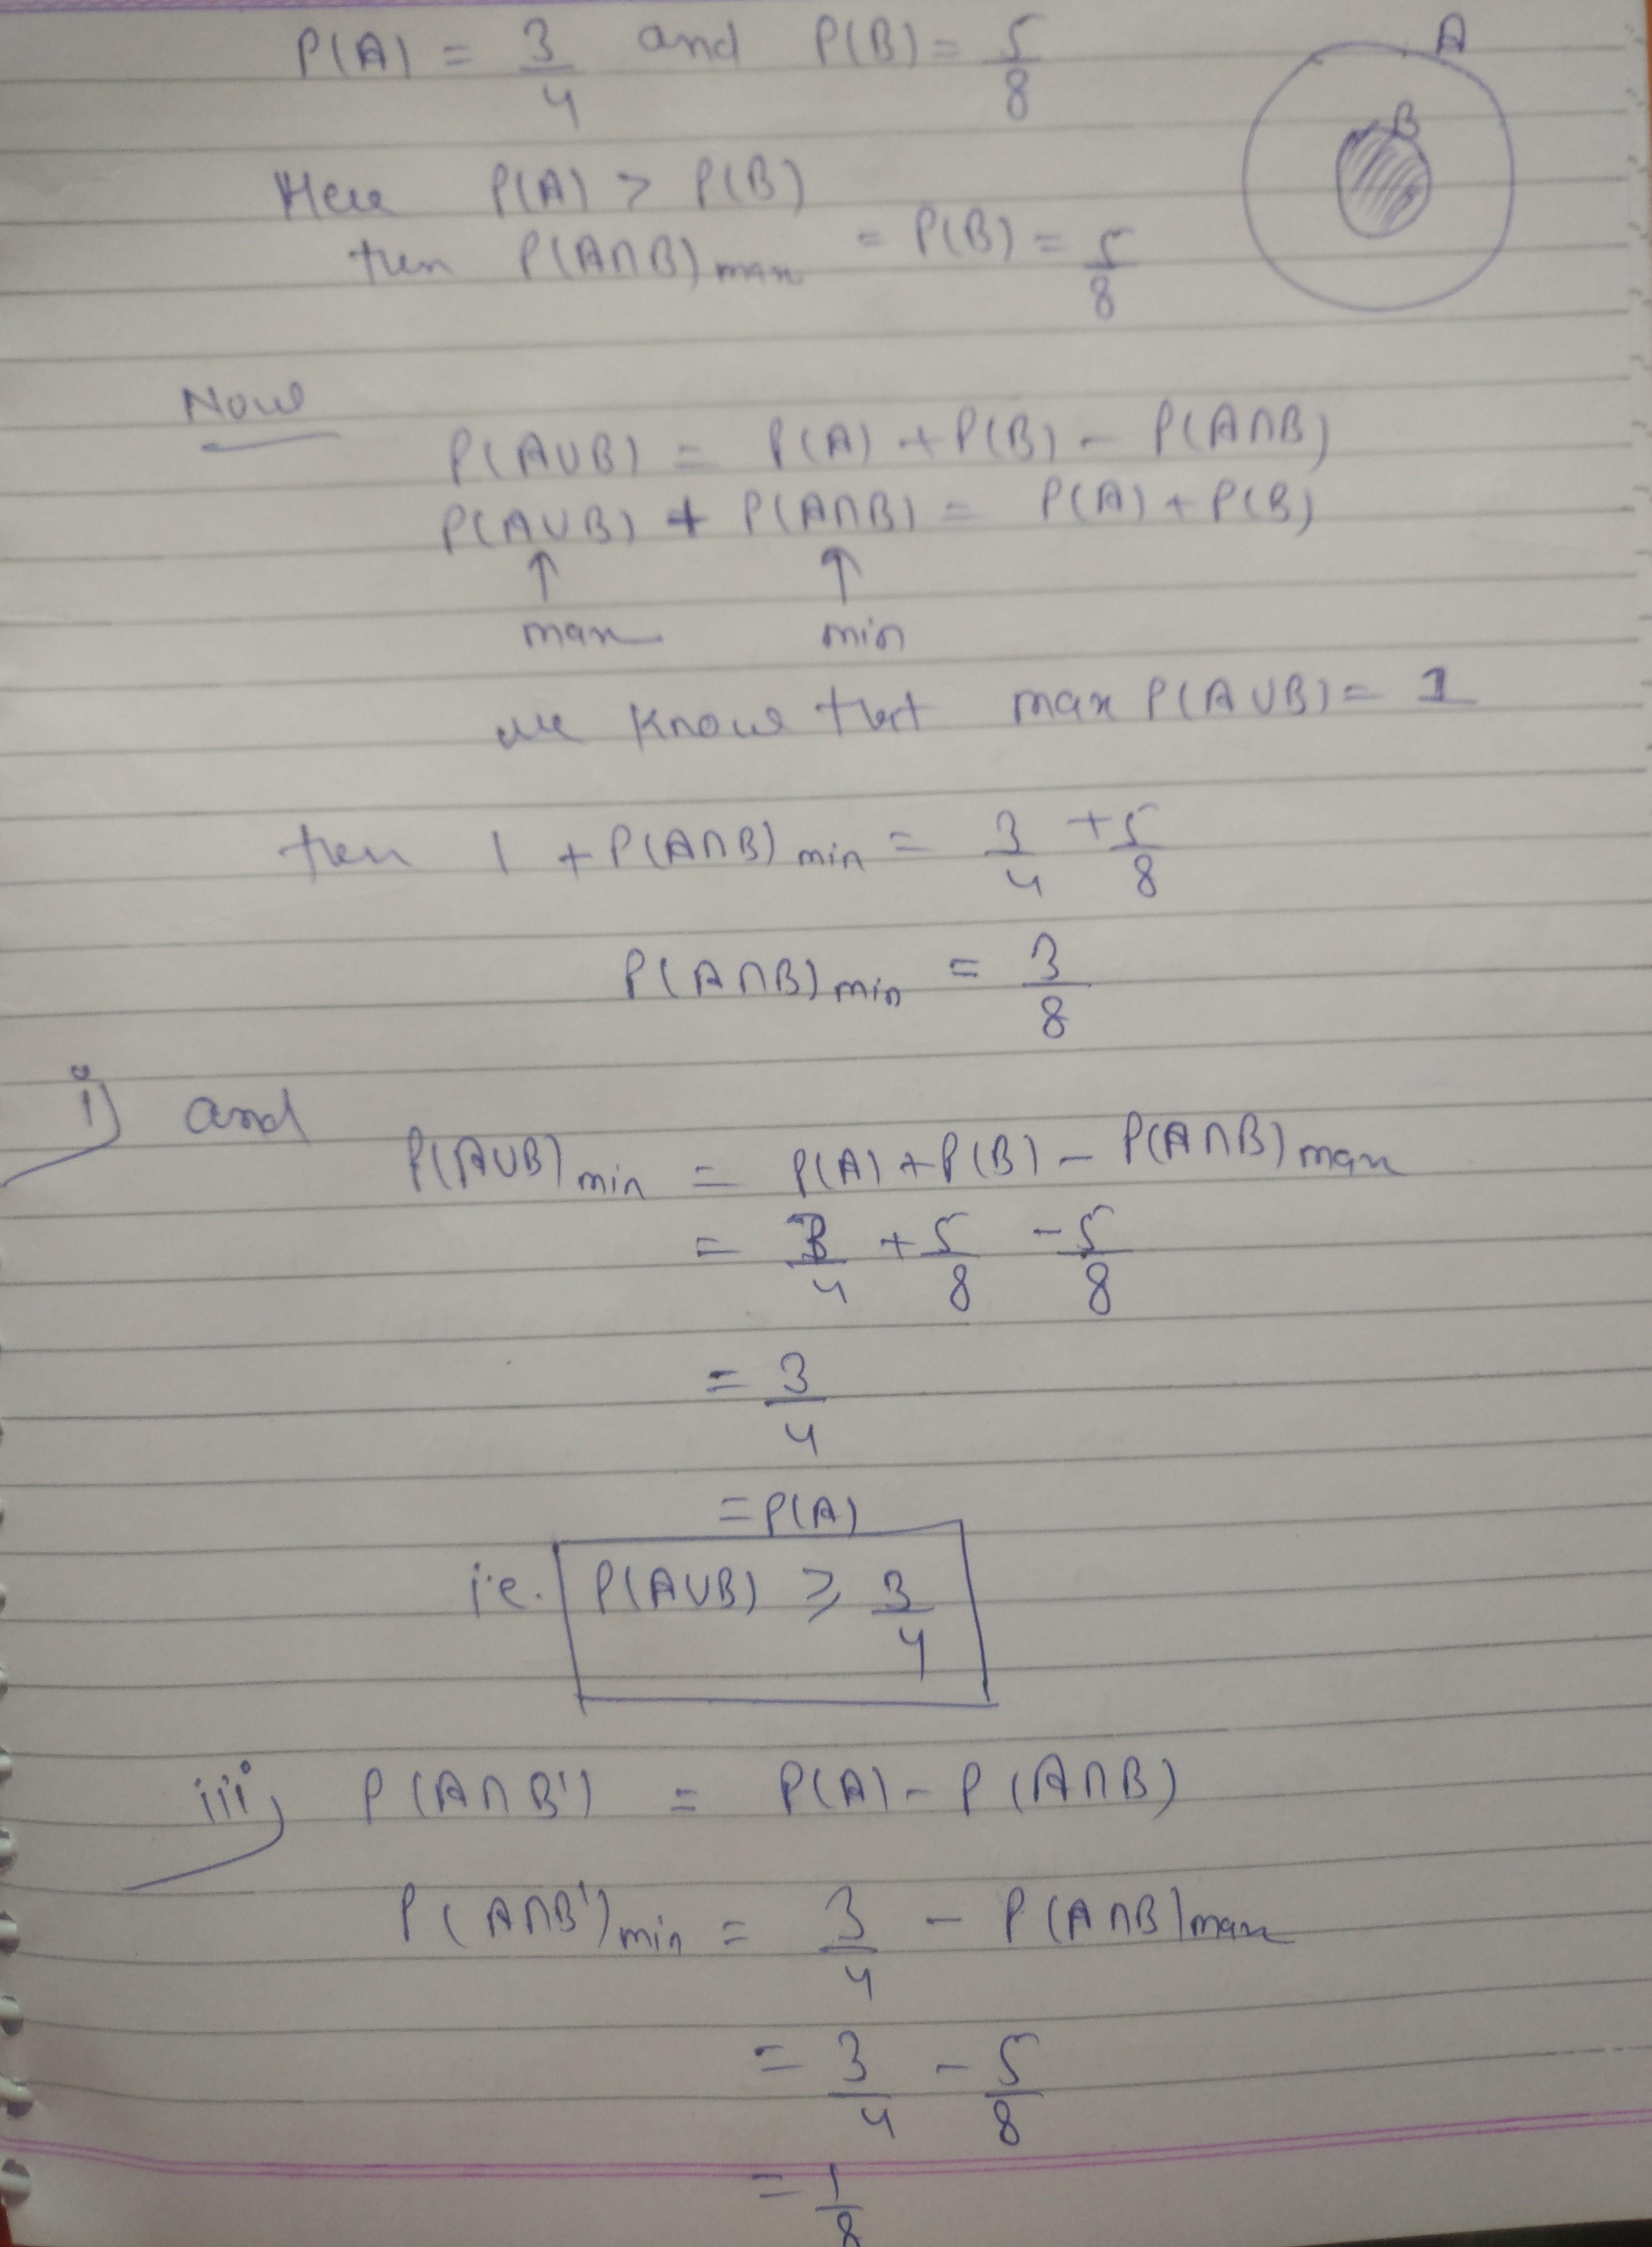 P(A) = 3/4 and P(B) = 5/8
A
B
Here P(A) > P(B)
then P(A∩B) max = P(B) = 5/8
Now
P(A∪B) = P(A) + P(B) - P(A∩B)
P(A∪B) + P(A∩B) = P(A) + P(B)
↑ ↑
max min
we know that max P(A∪B) = 1
then 1 + P(A∩B) min = 3/4 + 5/8
P(A∩B) min = 3/8
i) and
P(A∪B) min = P(A) + P(B) - P(A∩B) max
= 3/4 + 5/8 - 5/8
= 3/4
= P(A)
i.e. P(A∪B) ⩾ 3/4
iii) P(A∩B') = P(A) - P(A∩B)
P(A∩B') min = 3/4 - P(A∩B) max
= 3/4 - 5/8
= 1/8